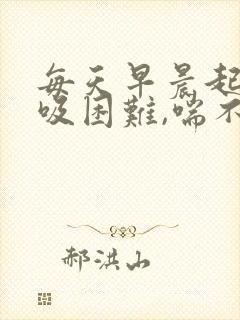 每天早晨起
吸困難,喘不
郝洪山